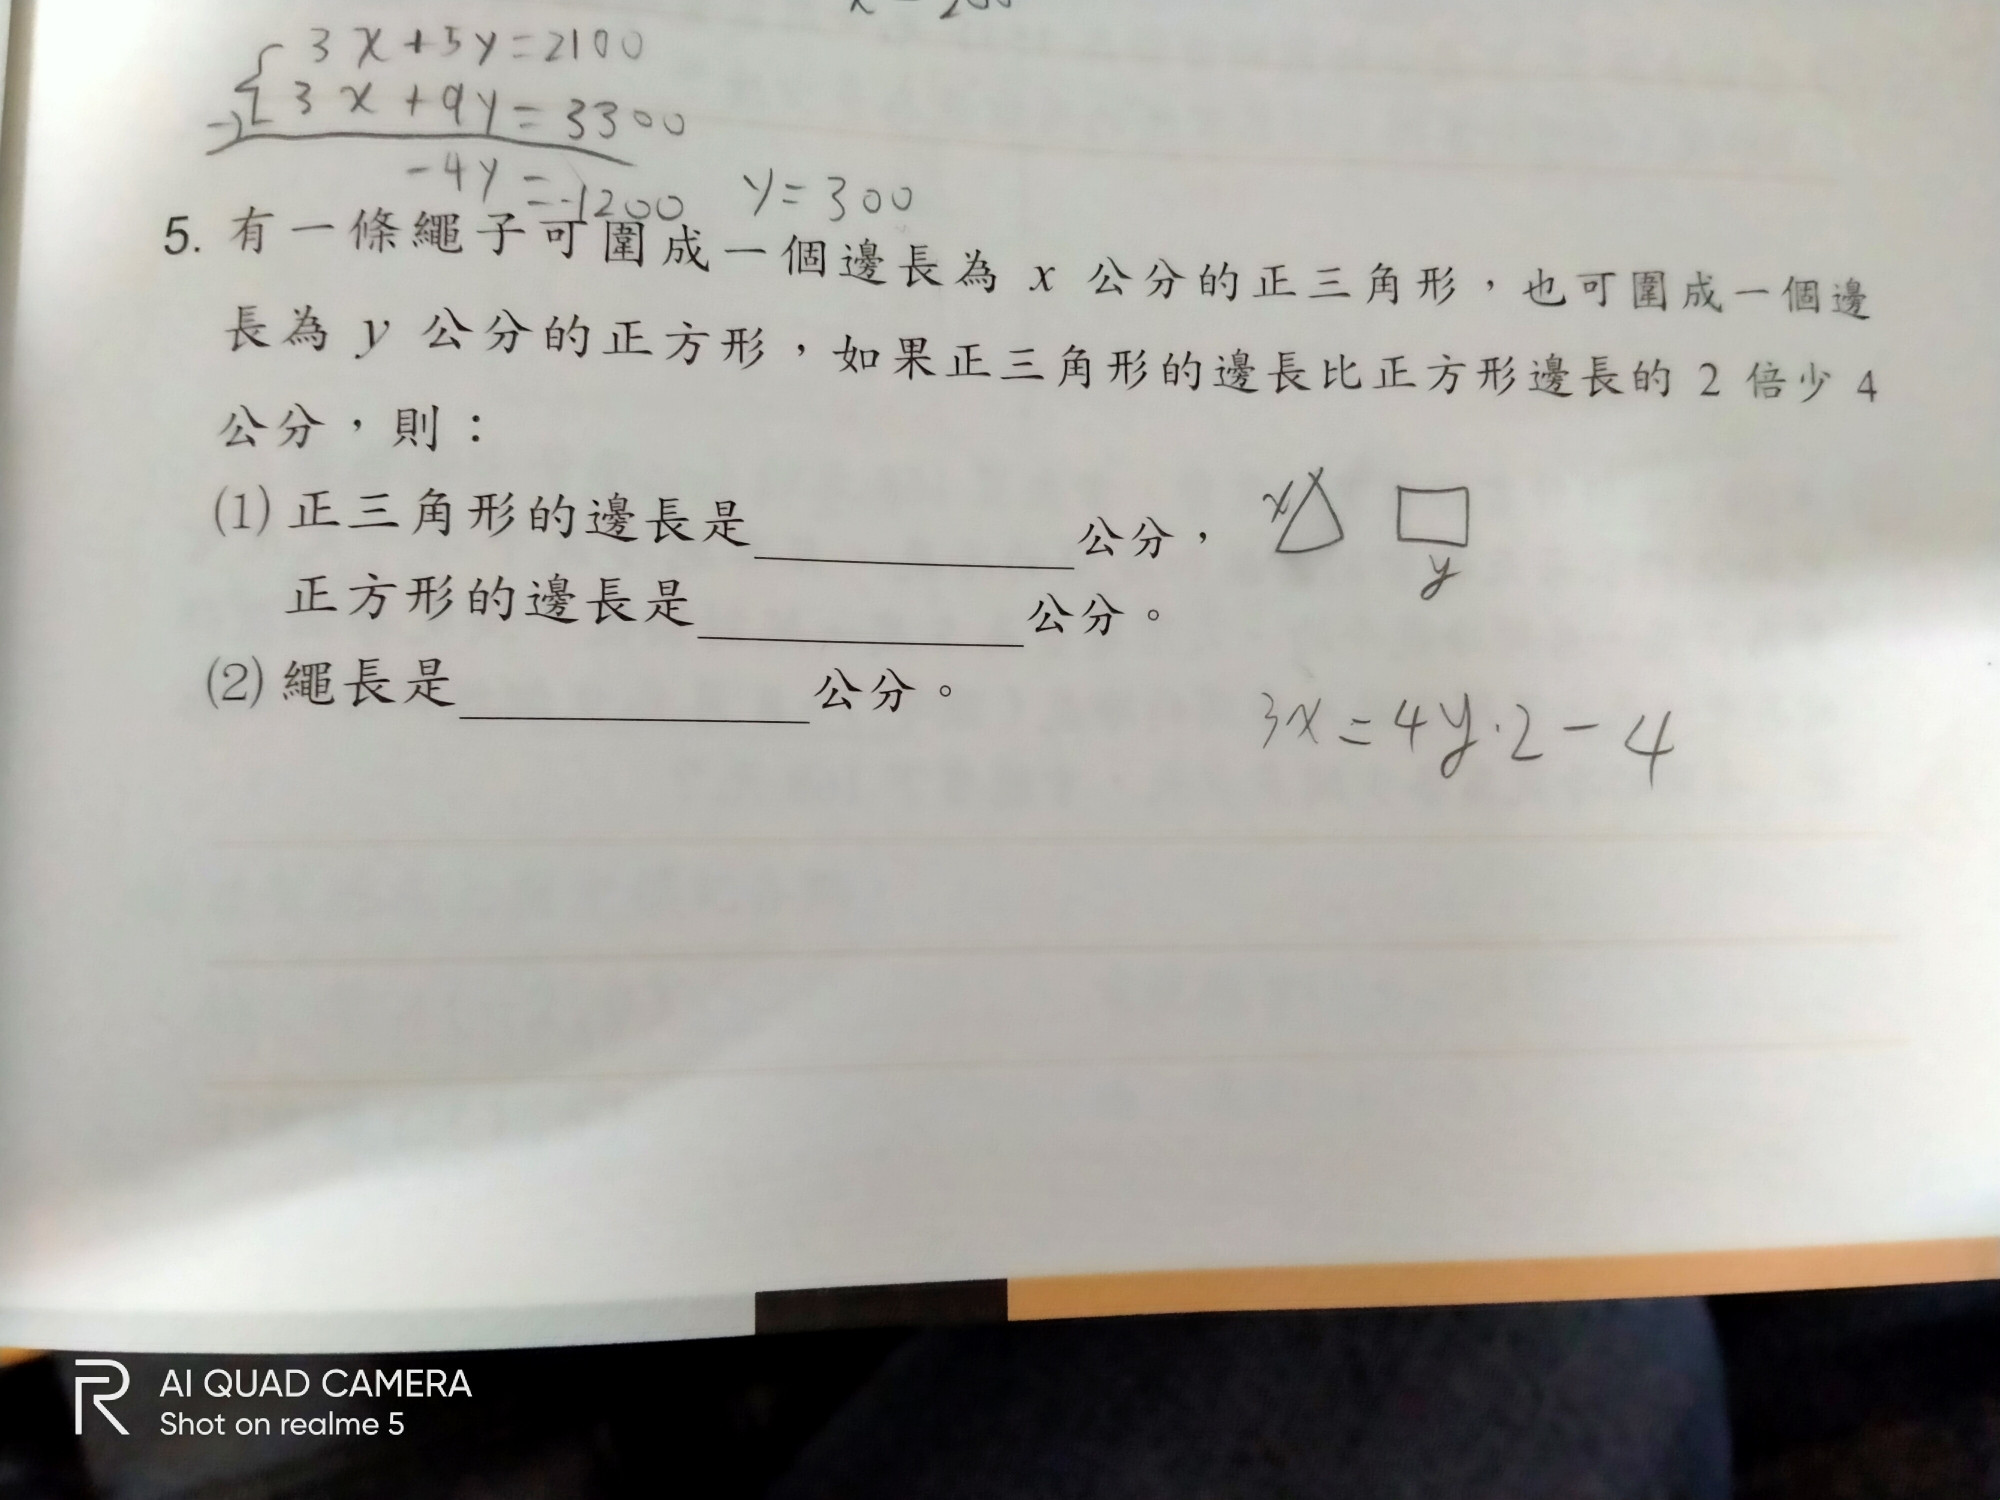 3x+5y=2100
3x+9y=3300
-4y=-1200 y=300
5. 有一條繩子可圍成一個邊長為 x 公分的正三角形，也可圍成一個邊
長為 y 公分的正方形，如果正三角形的邊長比正方形邊長的 2 倍少 4
公分，則：
(1) 正三角形的邊長是 公分， x
正方形的邊長是 公分。 y
(2) 繩長是 公分。
3x=4y·2-4
AI QUAD CAMERA
Shot on realme 5